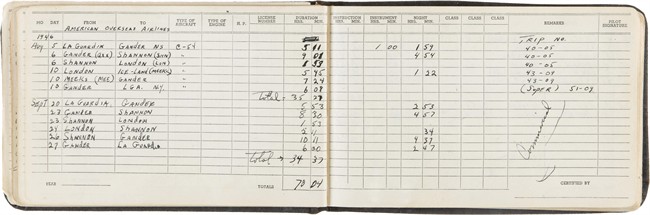 MO. DAY FROM TO TYPE OF AIRCRAFT TYPE OF ENGINE H.P. LICENSE NUMBERS DURATION HRS. MIN. INSTRUCTION HRS. MIN. INSTRUMENT HRS. MIN. NIGHT HRS. MIN. CLASS CLASS CLASS REMARKS PILOT SIGNATURE
AMERICAN OVERSEAS AIRLINES
1946 TRIP NO.
Aug 5 LA GUARDIA GANDER C-54 5 11 1 00 1 59 40-05
6 GANDER SHANNON " 9 08 4 54 40-05
6 SHANNON LONDON " 1 53 40-05
10 LONDON ICE-LAND (MEEKS) " 5 45 1 22 43-09
10 MEEKS GANDER " 7 24 43-09
10 GANDER L.G.A. N.Y. " 6 07 (Super) 51-09
Total = 35
Sept 20 LA GUARDIA GANDER 5 53 2 53
23 GANDER SHANNON 8 20 4 57
23 SHANNON LONDON 1 53
24 LONDON SHANNON 2 11 34
26 SHANNON GANDER 10 11 4 37
27 GANDER LA GUARDIA 6 00 2 47
Total = 34 37
Commercial
TOTALS 70 04
CERTIFIED BY